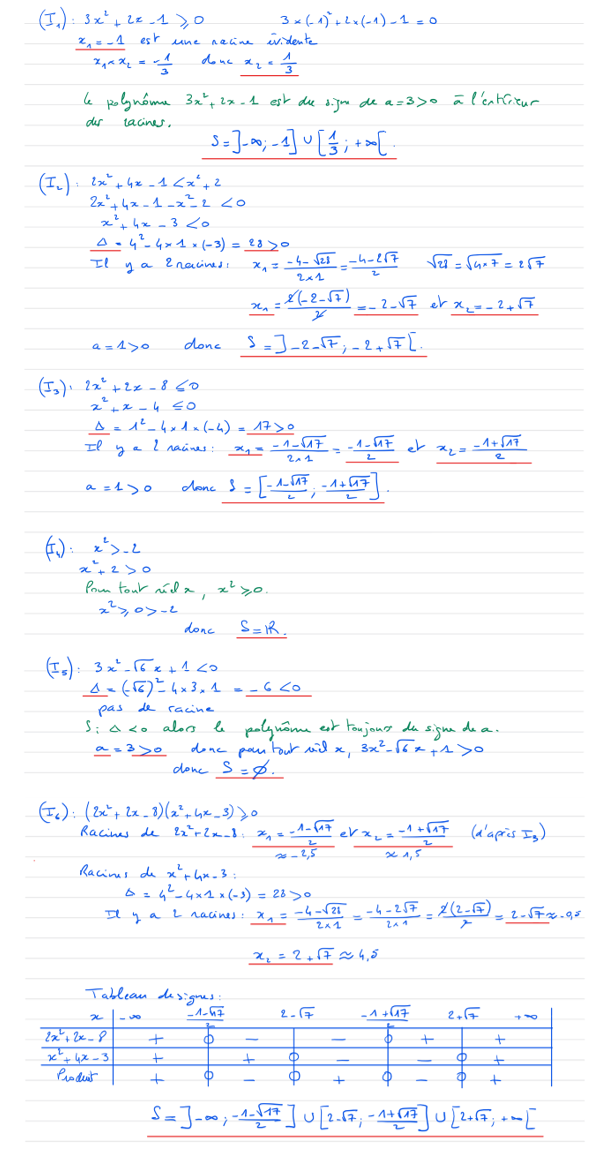 (I₁): 3x² + 2x - 1 ⩾ 0 3×(-1)² + 2×(-1) - 1 = 0
x₁ = -1 est une racine évidente
x₁ × x₂ = -1/3 donc x₂ = 1/3
Le polynôme 3x² + 2x - 1 est du signe de a = 3 > 0 à l'extérieur
des racines.
S = ]-∞; -1] ∪ [1/3; +∞[.
(I₂): 2x² + 4x - 1 < x² + 2
2x² + 4x - 1 - x² - 2 < 0
x² + 4x - 3 < 0
Δ = 4² - 4×1×(-3) = 28 > 0
Il y a 2 racines: x₁ = (-4-√28)/(2×1) = (-4-2√7)/2 √28 = √(4×7) = 2√7
x₁ = 2(-2-√7)/2 = -2-√7 et x₂ = -2+√7
a = 1 > 0 donc S = ]-2-√7; -2+√7[.
(I₃): 2x² + 2x - 8 ⩽ 0
x² + x - 4 ⩽ 0
Δ = 1² - 4×1×(-4) = 17 > 0
Il y a 2 racines: x₁ = (-1-√17)/(2×1) = (-1-√17)/2 et x₂ = (-1+√17)/2
a = 1 > 0 donc S = [(-1-√17)/2; (-1+√17)/2].
(I₄): x² > -2
x² + 2 > 0
Pour tout réel x, x² ⩾ 0.
x² ⩾ 0 > -2
donc S = ℝ.
(I₅): 3x² - √6 x + 1 < 0
Δ = (-√6)² - 4×3×1 = -6 < 0
pas de racine
Si Δ < 0 alors le polynôme est toujours du signe de a.
a = 3 > 0 donc pour tout réel x, 3x² - √6 x + 1 > 0
donc S = ∅.
(I₆): (2x² + 2x - 8)(x² + 4x - 3) ⩾ 0
Racines de 2x² + 2x - 8: x₁ = (-1-√17)/2 et x₂ = (-1+√17)/2 (d'après I₃)
≈ -2,5 ≈ 1,5
Racines de x² + 4x - 3:
Δ = 4² - 4×1×(-3) = 28 > 0
Il y a 2 racines: x₁ = (-4-√28)/(2×1) = (-4-2√7)/(2×1) = 2(2-√7)/2 = 2-√7 ≈ -0,5
x₂ = 2+√7 ≈ 4,5
Tableau de signes:
x -∞ (-1-√17)/2 2-√7 (-1+√17)/2 2+√7 +∞
2x² + 2x - 8 + 0 - - 0 + +
x² + 4x - 3 + + 0 - - 0 +
Produit + 0 - 0 + 0 - 0 +
S = ]-∞; (-1-√17)/2] ∪ [2-√7; (-1+√17)/2] ∪ [2+√7; +∞[